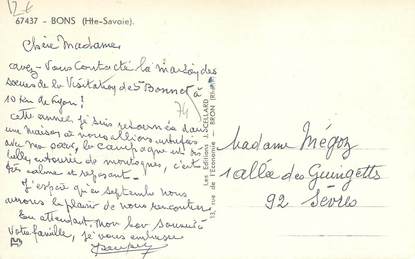 12 €
67437 - BONS (Hte-Savoie).
Chère Madame,
avez-vous contacté la maison des
sœurs de la Visitation de St Bonnet à
10 km de Lyon?
cette année, je suis retournée dans
une maison où nous allions autrefois
avec mes sœurs, la campagne est
belle, entourée de montagnes, c'est
très calme et reposant.
J'espère qu'en septembre nous
aurons le plaisir de nous rencontrer
En attendant, mon bon souvenir à
votre famille, je vous embrasse
74
Les Editions J. CELLARD
53, rue de l'Economie - BRON (Rhône)
Madame Mégoz
1 allée des Guingetts
92 Sèvres